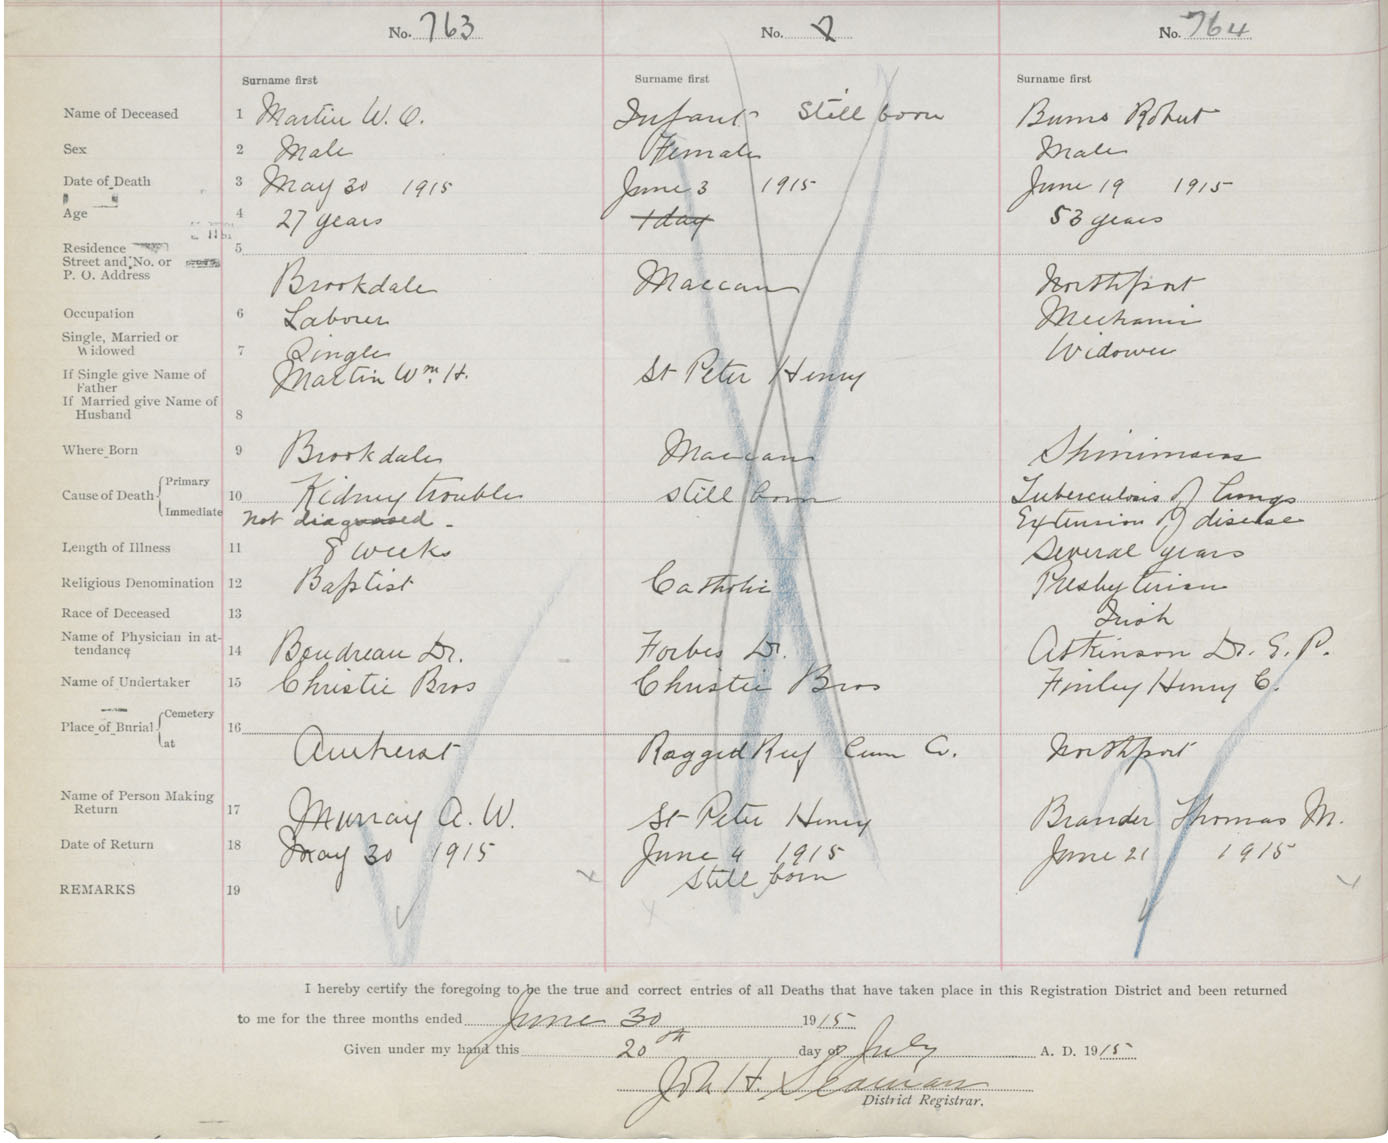 No. 763 No. No. 764
Surname first Surname first Surname first
Name of Deceased 1 Martin W. O. Infant Still born Burns Robert
Sex 2 Male Female Male
Date of Death 3 May 30 1915 June 3 1915 June 19 1915
Age 4 27 years 1 day 53 years
Residence 5
Street and No. or
P. O. Address Brookdale Maccan Northport
Occupation 6 Laborer Mechanic
Single, Married or
Widowed 7 Single Widower
If Single give Name of
Father Martin Wm. H. St Peter Henry
If Married give Name of
Husband 8
Where Born 9 Brookdale Maccan Shinimicas
Cause of Death Primary 10 Kidney trouble still born Tuberculosis of Lungs
Immediate not diagnosed - Extension of disease
Length of Illness 11 8 weeks Several years
Religious Denomination 12 Baptist Catholic Presbyterian
Race of Deceased 13 Irish
Name of Physician in at-
tendance 14 Boudreau Dr. Forbes Dr. Atkinson Dr. E. P.
Name of Undertaker 15 Christie Bros Christie Bros Finley Henry C.
Place of Burial Cemetery 16
at Amherst Ragged Reef Cum Co. Northport
Name of Person Making
Return 17 Murray A. W. St Peter Henry Brander Thomas M.
Date of Return 18 May 30 1915 June 4 1915 June 21 1915
REMARKS 19 Still born
I hereby certify the foregoing to be the true and correct entries of all Deaths that have taken place in this Registration District and been returned
to me for the three months ended June 30 1915
Given under my hand this 20th day of July A. D. 1915
Jo H. Seaman
District Registrar.